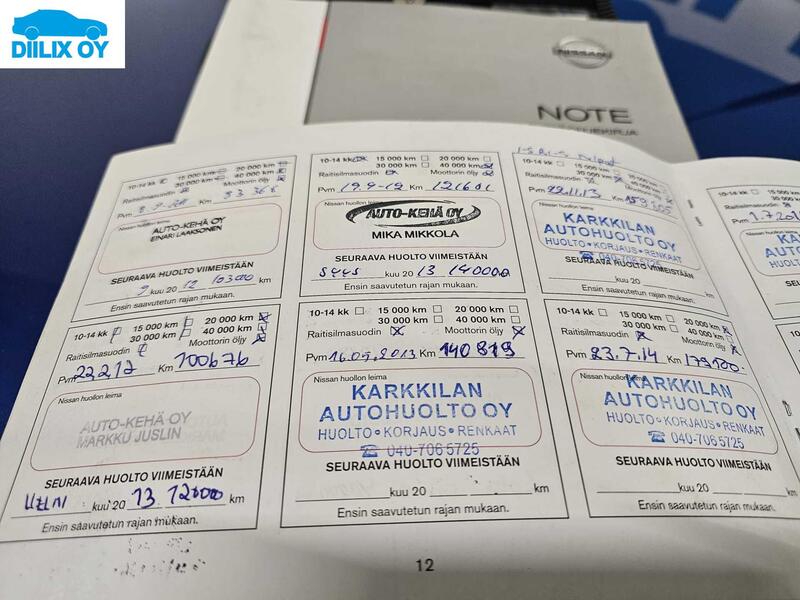 DIILIX OY
NISSAN
NOTE
10-14 kk 15 000 km 20 000 km
30 000 km 40 000 km
Raitisilmasuodin Moottorin öljy
Pvm Km
AUTO-KEHÄ OY
EINARI LAAKSONEN
SEURAAVA HUOLTO VIIMEISTÄÄN
9 kuu 20 12 103000 km
Ensin saavutetun rajan mukaan.
10-14 kk 15 000 km 20 000 km
30 000 km 40 000 km
Raitisilmasuodin Moottorin öljy
Pvm 19.9-12 Km 121601
AUTO-KEHÄ OY
MIKA MIKKOLA
SEURAAVA HUOLTO VIIMEISTÄÄN
SYYS kuu 20 13 140000 km
Ensin saavutetun rajan mukaan.
10-14 kk 15 000 km 20 000 km
30 000 km 40 000 km
Raitisilmasuodin Moottorin öljy
Pvm 22.11.13 Km
KARKKILAN
AUTOHUOLTO OY
HUOLTO • KORJAUS • RENKAAT
☎ 040-706 5725
SEURAAVA HUOLTO VIIMEISTÄÄN
kuu 20 km
Ensin saavutetun rajan mukaan.
10-14 kk
Raitisilmasuodin
Pvm
10-14 kk 15 000 km 20 000 km
30 000 km 40 000 km
Raitisilmasuodin Moottorin öljy
Pvm 22212 Km 100676
Nissan huollon leima
AUTO-KEHÄ OY
MARKKU JUSLIN
SEURAAVA HUOLTO VIIMEISTÄÄN
kuu 20 13 12000 km
Ensin saavutetun rajan mukaan.
10-14 kk 15 000 km 20 000 km
30 000 km 40 000 km
Raitisilmasuodin Moottorin öljy
Pvm 16.05.2013 Km 140819
Nissan huollon leima
KARKKILAN
AUTOHUOLTO OY
HUOLTO • KORJAUS • RENKAAT
☎ 040-706 5725
SEURAAVA HUOLTO VIIMEISTÄÄN
kuu 20 km
Ensin saavutetun rajan mukaan.
10-14 kk 15 000 km 20 000 km
30 000 km 40 000 km
Raitisilmasuodin Moottorin öljy
Pvm 23.7.14 Km 179100
Nissan huollon leima
KARKKILAN
AUTOHUOLTO OY
HUOLTO • KORJAUS • RENKAAT
☎ 040-706 5725
SEURAAVA HUOLTO VIIMEISTÄÄN
kuu 20 km
Ensin saavutetun rajan mukaan.
12